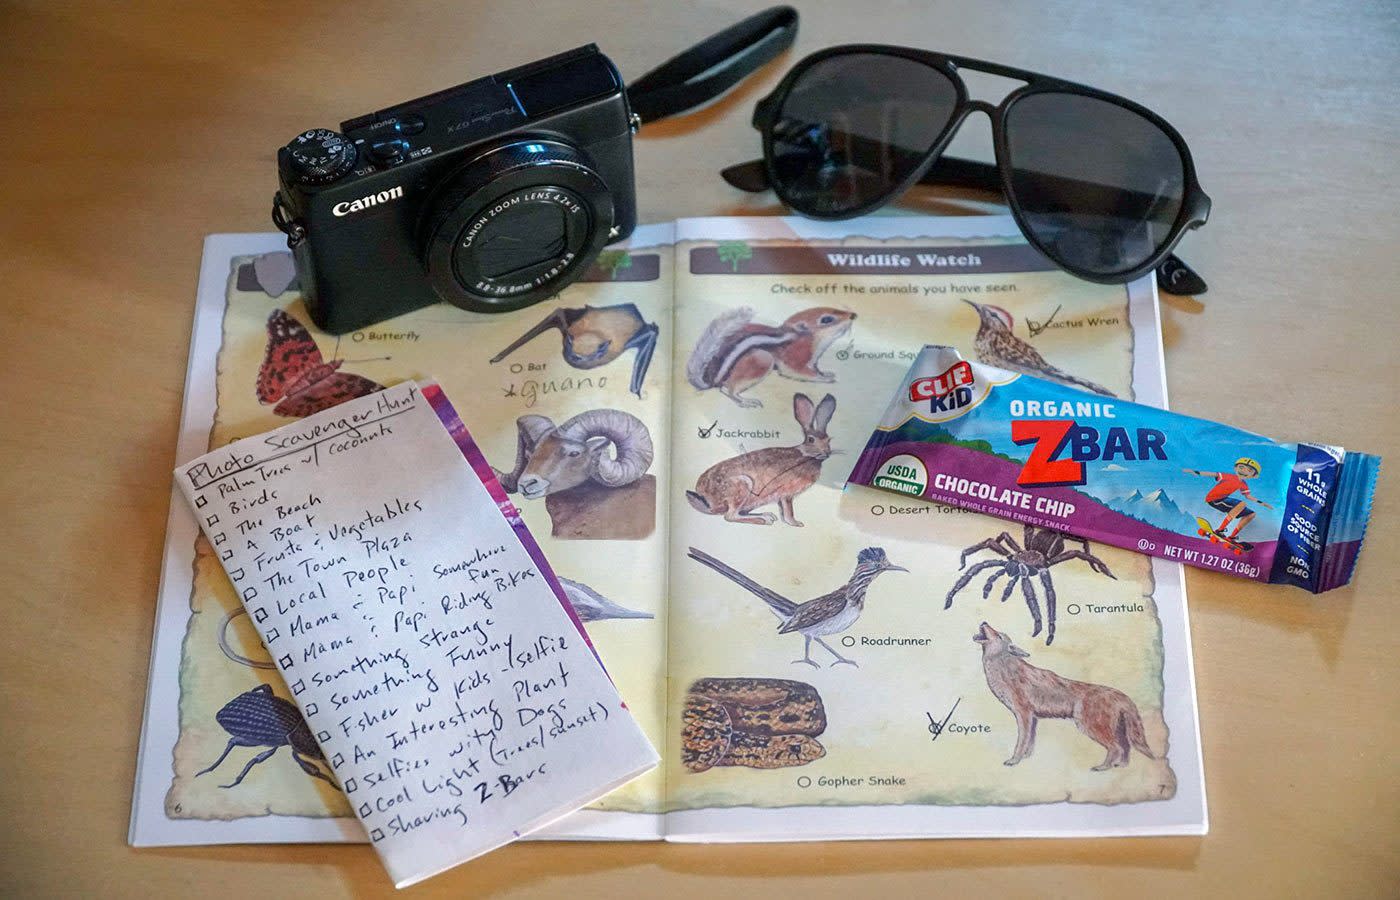 ON/OFF
PowerShot G7 X
Canon
CANON ZOOM LENS 4.2x IS
8.8-36.8mm 1:1.8-2.8
X
Wildlife Watch
Check off the animals you have seen.
Butterfly
Bat
*guano
Cactus Wren
Ground Squ
Jackrabbit
Desert Torto
Tarantula
Roadrunner
Coyote
Gopher Snake
6
7
Photo Scavenger Hunt
Palm Trees w/ coconuts
Birds
The Beach
A Boat
Fruits & Vegetables
The Town Plaza
Local People
Mama & Papi Somewhere fun
Mama & Papi Riding Bikes
Something Strange
Something Funny
Esher w Kids - (selfie
An Interesting Plant
Selfies with Dogs
Cool Light (Trees/sunset)
Sharing Z-Bars
CLIF
KiD
ORGANIC
ZBAR
USDA
ORGANIC
CHOCOLATE CHIP
BAKED WHOLE GRAIN ENERGY SNACK
NET WT 1.27 OZ (36g)
11g
WHOLE
GRAINS
GOOD
SOURCE
OF FIBER
NON
GMO